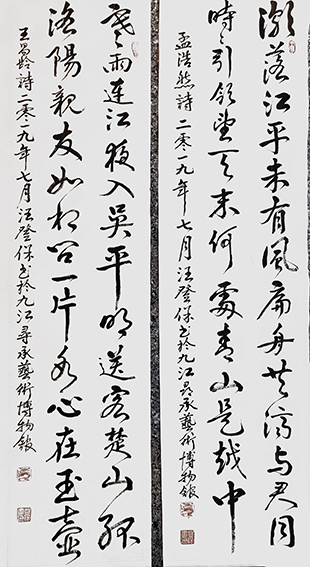 潮落江平未有風扁舟共济与君同
時々引領望天末何處青山是越中
孟浩然詩二零一九年七月汪登保书於九江尋承藝術博物館
寒雨連江夜入吳平明送客楚山孤
洛陽親友如相問一片冰心在玉壺
王昌齡詩二零一九年七月汪登保书於九江尋承藝術博物館